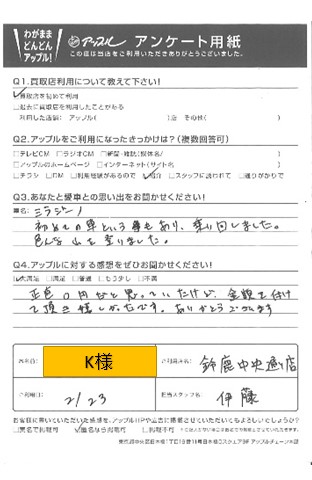 わがまま
どんどん
アップル!
アップル アンケート用紙
この度は当店をご利用いただきありがとうございました。
Q1.買取店利用について教えて下さい!
買取店を初めて利用
□過去に買取店を利用したことがある
利用した店舗: アップル( )店 その他( )
Q2.アップルをご利用になったきっかけは?(複数回答可)
□テレビCM □ラジオCM □新聞・雑誌(媒体名/ )
□アップルのホームページ □インターネット(サイト名 )
□チラシ □DM □利用経験があるので 紹介 □スタッフに誘われて □通りがかりで
Q3.あなたと愛車との思い出をお聞かせください!
車名: ミラジーノ
初めての車という事もあり、乗り回しました。
色んな山を登りました。
Q4.アップルに対する感想をぜひお聞かせください!
大満足 □満足 □普通 □もう少し □不満
正直0円かと思っていたけど、金額を付け
て頂き嬉しかったです。ありがとうございます
お名前: K様
ご利用店名: 鈴鹿中央通り店
ご利用日: 2/23
担当スタッフ名: 伊藤
お客様に書いていただいた感想を、アップルHPや広告に掲載させていただいてもよろしいでしょうか?
□実名で掲載可 匿名なら掲載可 □掲載不可